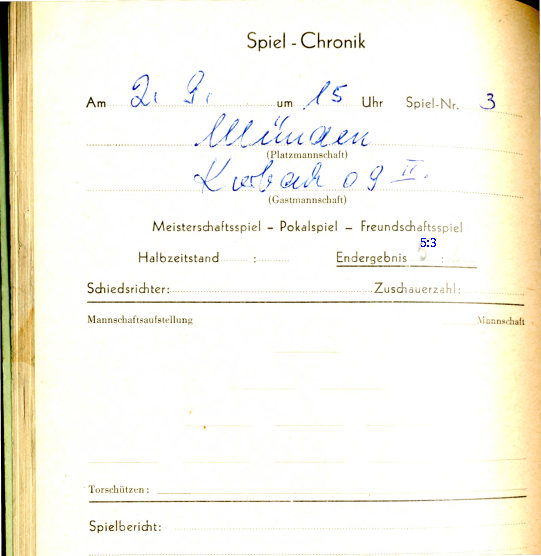 Spiel - Chronik
Am 2. 9. um 15 Uhr Spiel-Nr. 3
Münden
(Platzmannschaft)
Korbach 09 II.
(Gastmannschaft)
Meisterschaftsspiel – Pokalspiel – Freundschaftsspiel
Halbzeitstand : Endergebnis 5:3 :
Schiedsrichter: Zuschauerzahl:
Mannschaftsaufstellung Mannschaft
Torschützen:
Spielbericht: